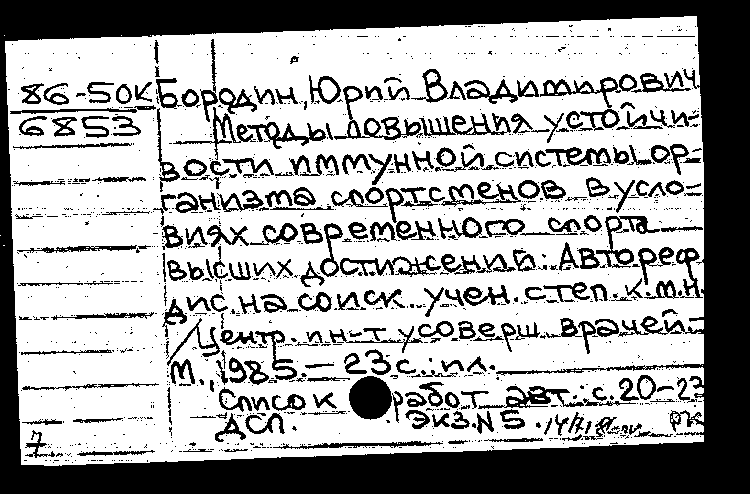 86-50К Бородин, Юрий Владимирович
6853 Методы повышения устойчи-
вости иммунной системы ор-
ганизма спортсменов в усло-
виях современного спорта
высших достижений: Автореф.
дис. на соиск. учен. степ. к.м.н.
/Центр. ин-т усоверш. врачей.-
М., 1985. — 23 с.: ил.
Список работ авт.: с. 20-23
ДСП. Экз. N 5.
7